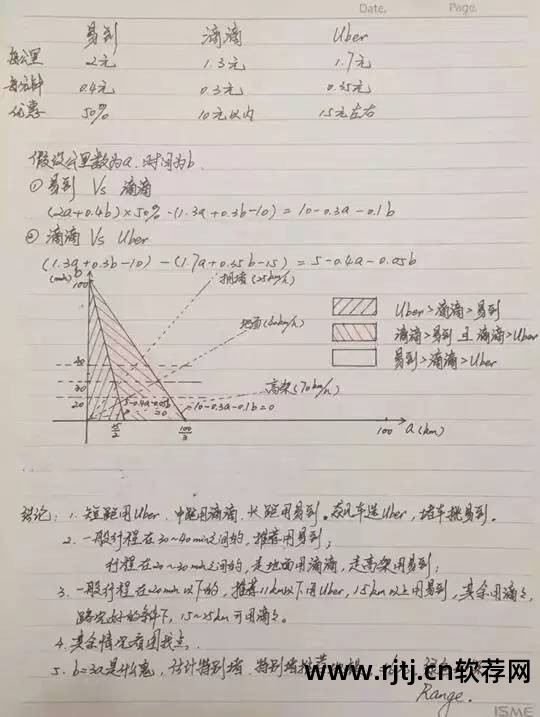 Date. Page.
易到 滴滴 Uber
每公里 2元 1.3元 1.7元
每分钟 0.4元 0.3元 0.35元
优惠 50% 10元以内 15元左右
假设公里数为a.时间为b.
① 易到 Vs 滴滴
(2a+0.4b)×50%-(1.3a+0.3b-10)=10-0.3a-0.1b
② 滴滴 Vs Uber
(1.3a+0.3b-10)-(1.7a+0.35b-15)=5-0.4a-0.05b
b
(min)
100
拥堵(25km/h)
地面(40km/h)
高架(70km/h)
Uber>滴滴>易到
滴滴>易到 且 滴滴>Uber
易到>滴滴>Uber
40
30
20
5-0.4a-0.05b
=0
10-0.3a-0.1b=0
25/2
100/3
100
a(km)
结论: 1. 短距用Uber. 中距用滴滴. 长距用易到。兜风车选Uber, 堵车挑易到.
2. 一般行程在30~40min之间的, 推荐用易到;
行程在20~30min之间的, 走地面用滴滴, 走高架用易到;
3. 一般行程在20min以下的, 推荐11km以下用Uber, 15km以上用易到, 其余用滴滴,
路况好的条件下, 15~25km可用滴滴。
4. 其余情况看图找点.
5. b=3a是什么鬼, 估计特别堵. 特别堵推荐
Range.
www.rjtj.cn软荐网
ISME